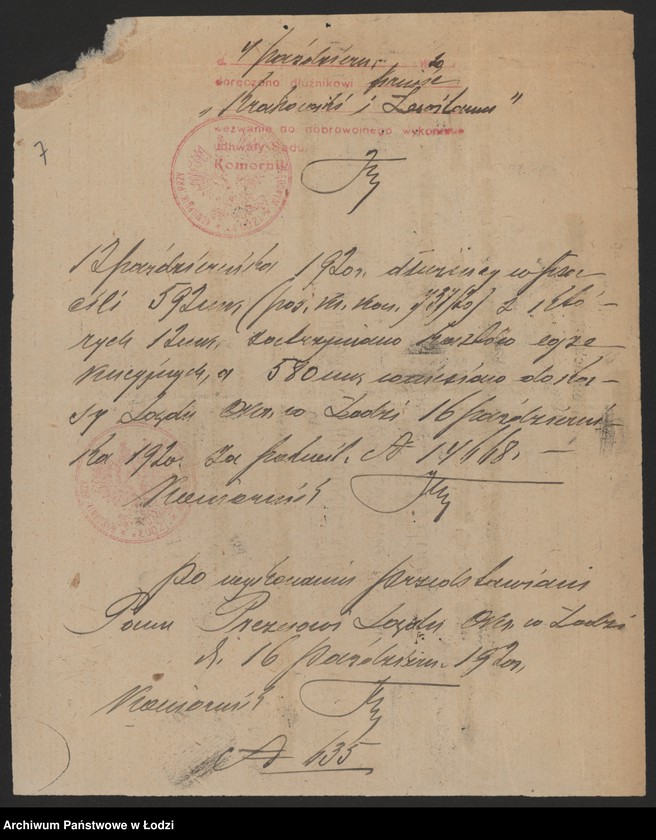 d. 4 październ. w 20
doręczono dłużnikowi firmie
„Krakowski i Lewi"
wezwanie do dobrowolnego wykonania
uchwały Sądu.
Komornik
7
12 października 1920r. dłużnicy wpła-
cili 592 mk, (poz. ks. kas. 737/20) z któ-
rych 12 mk, zatrzymano kosztów egze-
kucyjnych, a 580 mk, wniesiono do ka-
sy Sądu Okr. w Łodzi 16 październi-
ka 1920. za pokwit. № 17468. —
Komornik
Po wykonaniu przedstawiam
Panu Prezesowi Sądu Okr. w Łodzi
d. 16 październ. 1920r.
Komornik
№ 635
Archiwum Państwowe w Łodzi